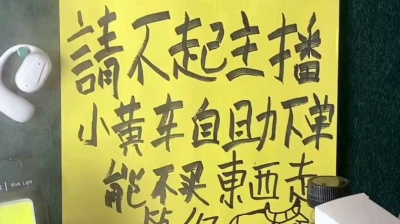 請不起主播
小黄车自助下单
能不买東西走